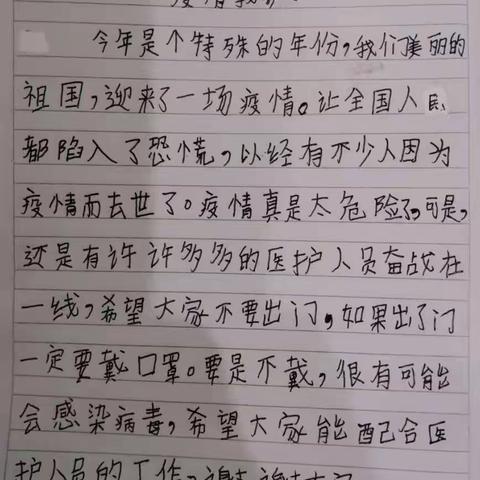 今年是个特殊的年份,我们美丽的
祖国,迎来了一场疫情。让全国人民
都陷入了恐慌,以经有不少人因为
疫情而去世了。疫情真是太危险了,可是,
还是有许许多多的医护人员奋战在
一线,希望大家不要出门,如果出了门
一定要戴口罩。要是不戴,很有可能
会感染病毒,希望大家能配合医
护人员的工作,谢谢大家